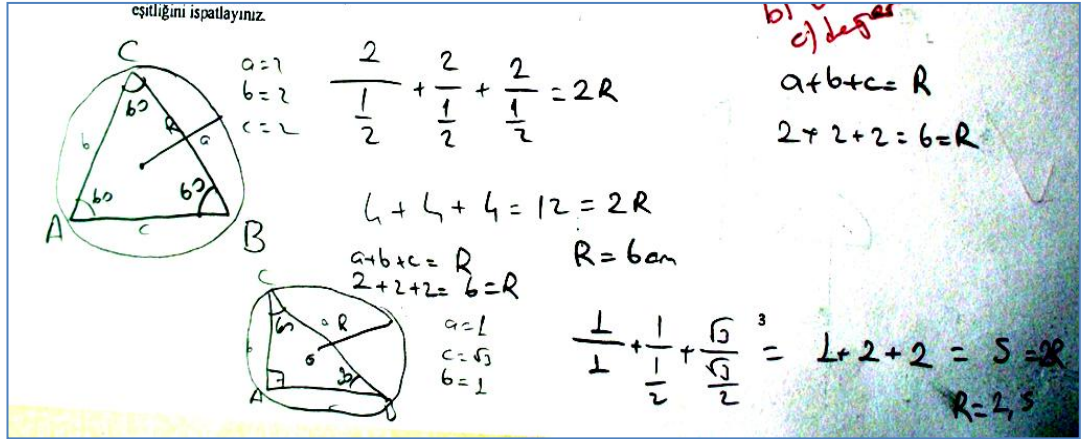 eşitliğini ispatlayınız.
b)
c) değer
C
60
60
60
A
B
R
a
b
c
a=2
b=2
c=2
2/(1/2) + 2/(1/2) + 2/(1/2) = 2R
a+b+c= R
2+2+2=6=R
4+4+4=12=2R
R=6cm
a+b+c= R
2+2+2= 6=R
C
60
R
A
a=1
c=√3
b=1
1/1 + 1/(1/2) + √3/(√3/2) = 1+2+2 = 5 =2R
3
R=2,5